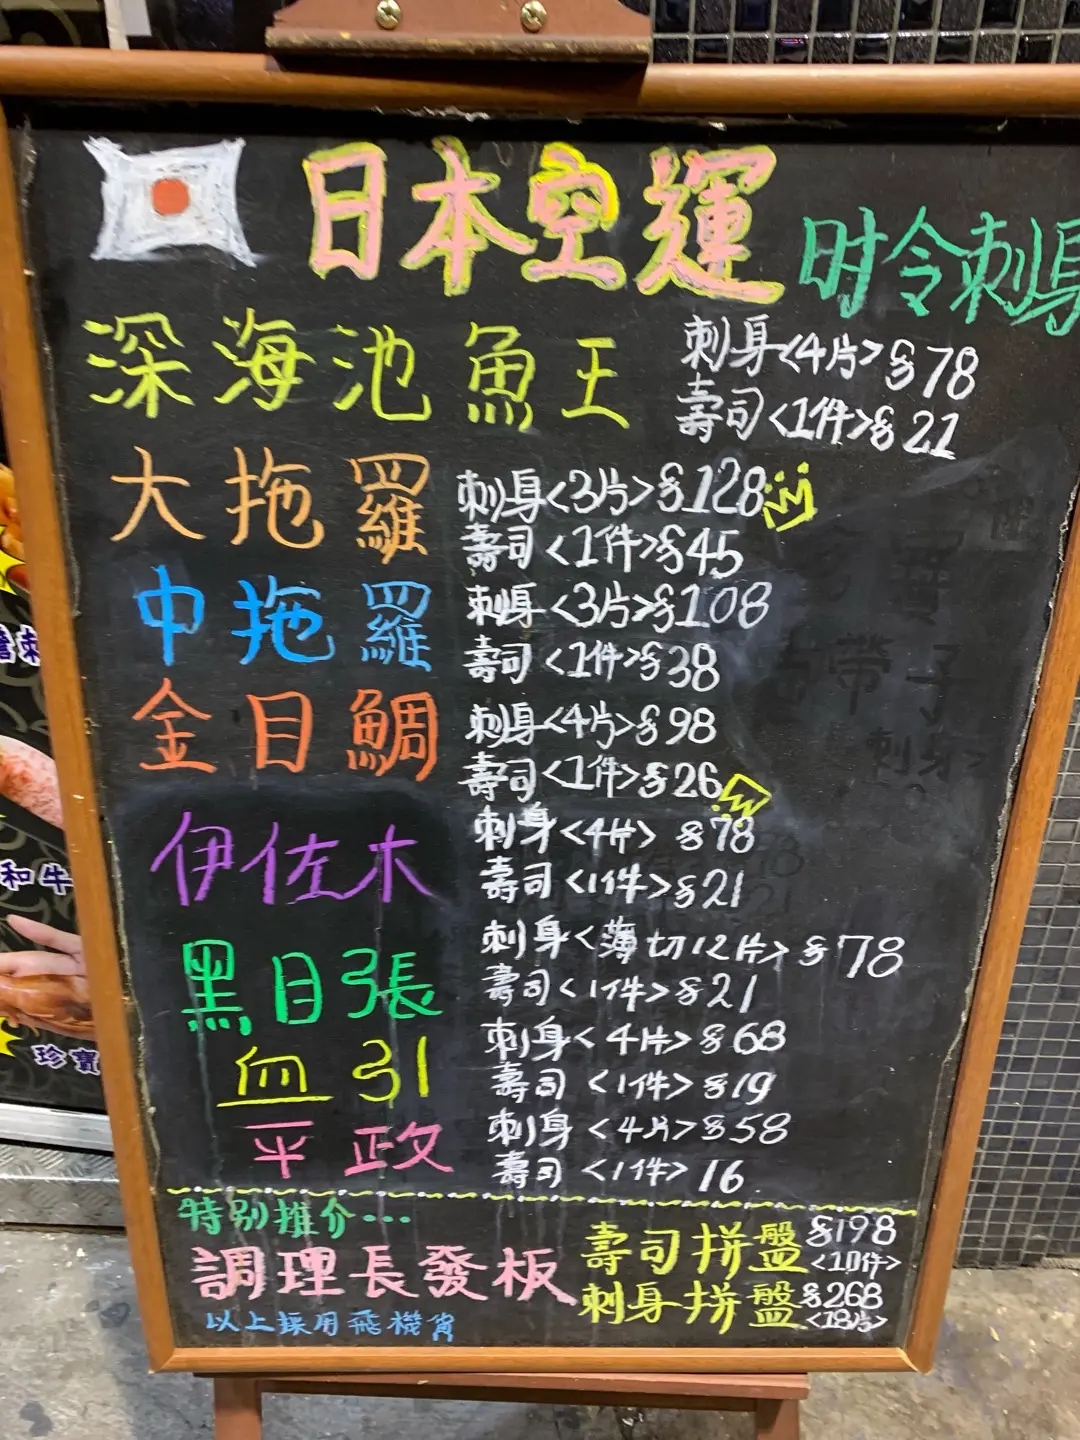 日本空運
时令刺身
深海池魚王 刺身<4片>$78
壽司<1件>$21
大拖羅 刺身<3片>$128
壽司<1件>$45
中拖羅 刺身<3片>$108
壽司<1件>$38
金目鯛 刺身<4片>$98
壽司<1件>$26
伊佐木 刺身<4片> $78
壽司<1件>$21
黑目張 刺身<薄切12片>$78
壽司<1件>$21
血引 刺身<4片>$68
壽司<1件>$19
平政 刺身<4片>$58
壽司<1件>16
特别推介...
調理長發板
以上採用飛機貨
壽司拼盤 $198
<10件>
刺身拼盤 $268
<18片>
和牛
珍寶